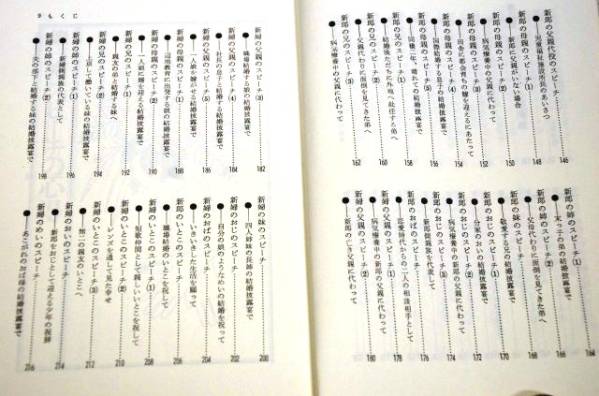 新郎の父親代役のスピーチ
●児童福祉施設所長のあいさつ
146
新郎の母親のスピーチ(1)
●新郎に父親がいない場合
148
新郎の母親のスピーチ(2)
●病気療養中の父親に代わって
150
新郎の母親のスピーチ(3)
152
新郎の母親のスピーチ(4)
●国際結婚する息子の結婚披露宴で
154
新郎の母親のスピーチ(5)
156
新郎の兄のスピーチ(1)
158
新郎の兄のスピーチ(2)
160
●父親代わりに面倒を見てきた弟へ
新郎の兄のスピーチ(3)
●病気療養中の父親に代わって
162
新郎の姉のスピーチ(1)
●末っ子の弟の結婚披露宴で
164
新郎の姉のスピーチ(2)
●父母代わりに面倒を見てきた弟へ
166
新郎の妹のスピーチ
●敬愛する兄の結婚披露宴で
168
新郎のおじのスピーチ(1)
●分家のおい の結婚披露宴で
170
新郎のおじのスピーチ(2)
●病気療養中の新郎の父親に代わって
172
新郎のおじのスピーチ(3)
●新郎側親族を代表して
174
176
●恋愛時代からの二人の相談相手として
178
●病気療養中の新郎の父親に代わって
●新郎の亡き父親に代わって
180
さもくじ
新婦の父親のスピーチ(2)
●職場結婚する娘の結婚披露宴で
182
新婦の父親のスピーチ(3)
184
新婦の父親のスピーチ(4)
●社長の息子と結婚する娘の結婚披露宴で
186
新婦の父親のスピーチ(5)
●一人娘を嫁がせる結婚披露宴で
188
新婦の母親のスピーチ(1)
190
新婦の母親のスピーチ(2)
●一人娘に婿を迎える結婚披露宴で
192
新婦の兄のスピーチ(1)
●親友の弟と結婚する妹へ
194
新婦の兄のスピーチ(2)
●上京して働いている妹の結婚披露宴で
196
新婦の姉のスピーチ(1)
●新婦側親族の代表として
198
新婦の姉のスピーチ(2)
●夫の部下と結婚する妹の結婚披露宴で
新婦の妹のスピーチ
●四人姉妹の長姉の結婚披露宴で
200
新婦のおじのスピーチ
●自分の娘のようなめいの結婚を祝って
202
新婦のおばのスピーチ
●いきいきした生活を願って
204
新婦のいとこのスピーチ
●職場結婚のいとこを祝して
206
新婦のいとこのスピーチ(1)
●短歌仲間として親しいいとこを祝して
208
新婦のいとこのスピーチ(2)
●レンズを通して見た幸せ
210
新婦のいとこのスピーチ(3)
●無二の親友のいとこへ
212
新婦のおいのスピーチ
●新郎をおじとして迎える少年の祝辞
214
新婦のめいのスピーチ
●あこがれのおば様の結婚披露宴で
216